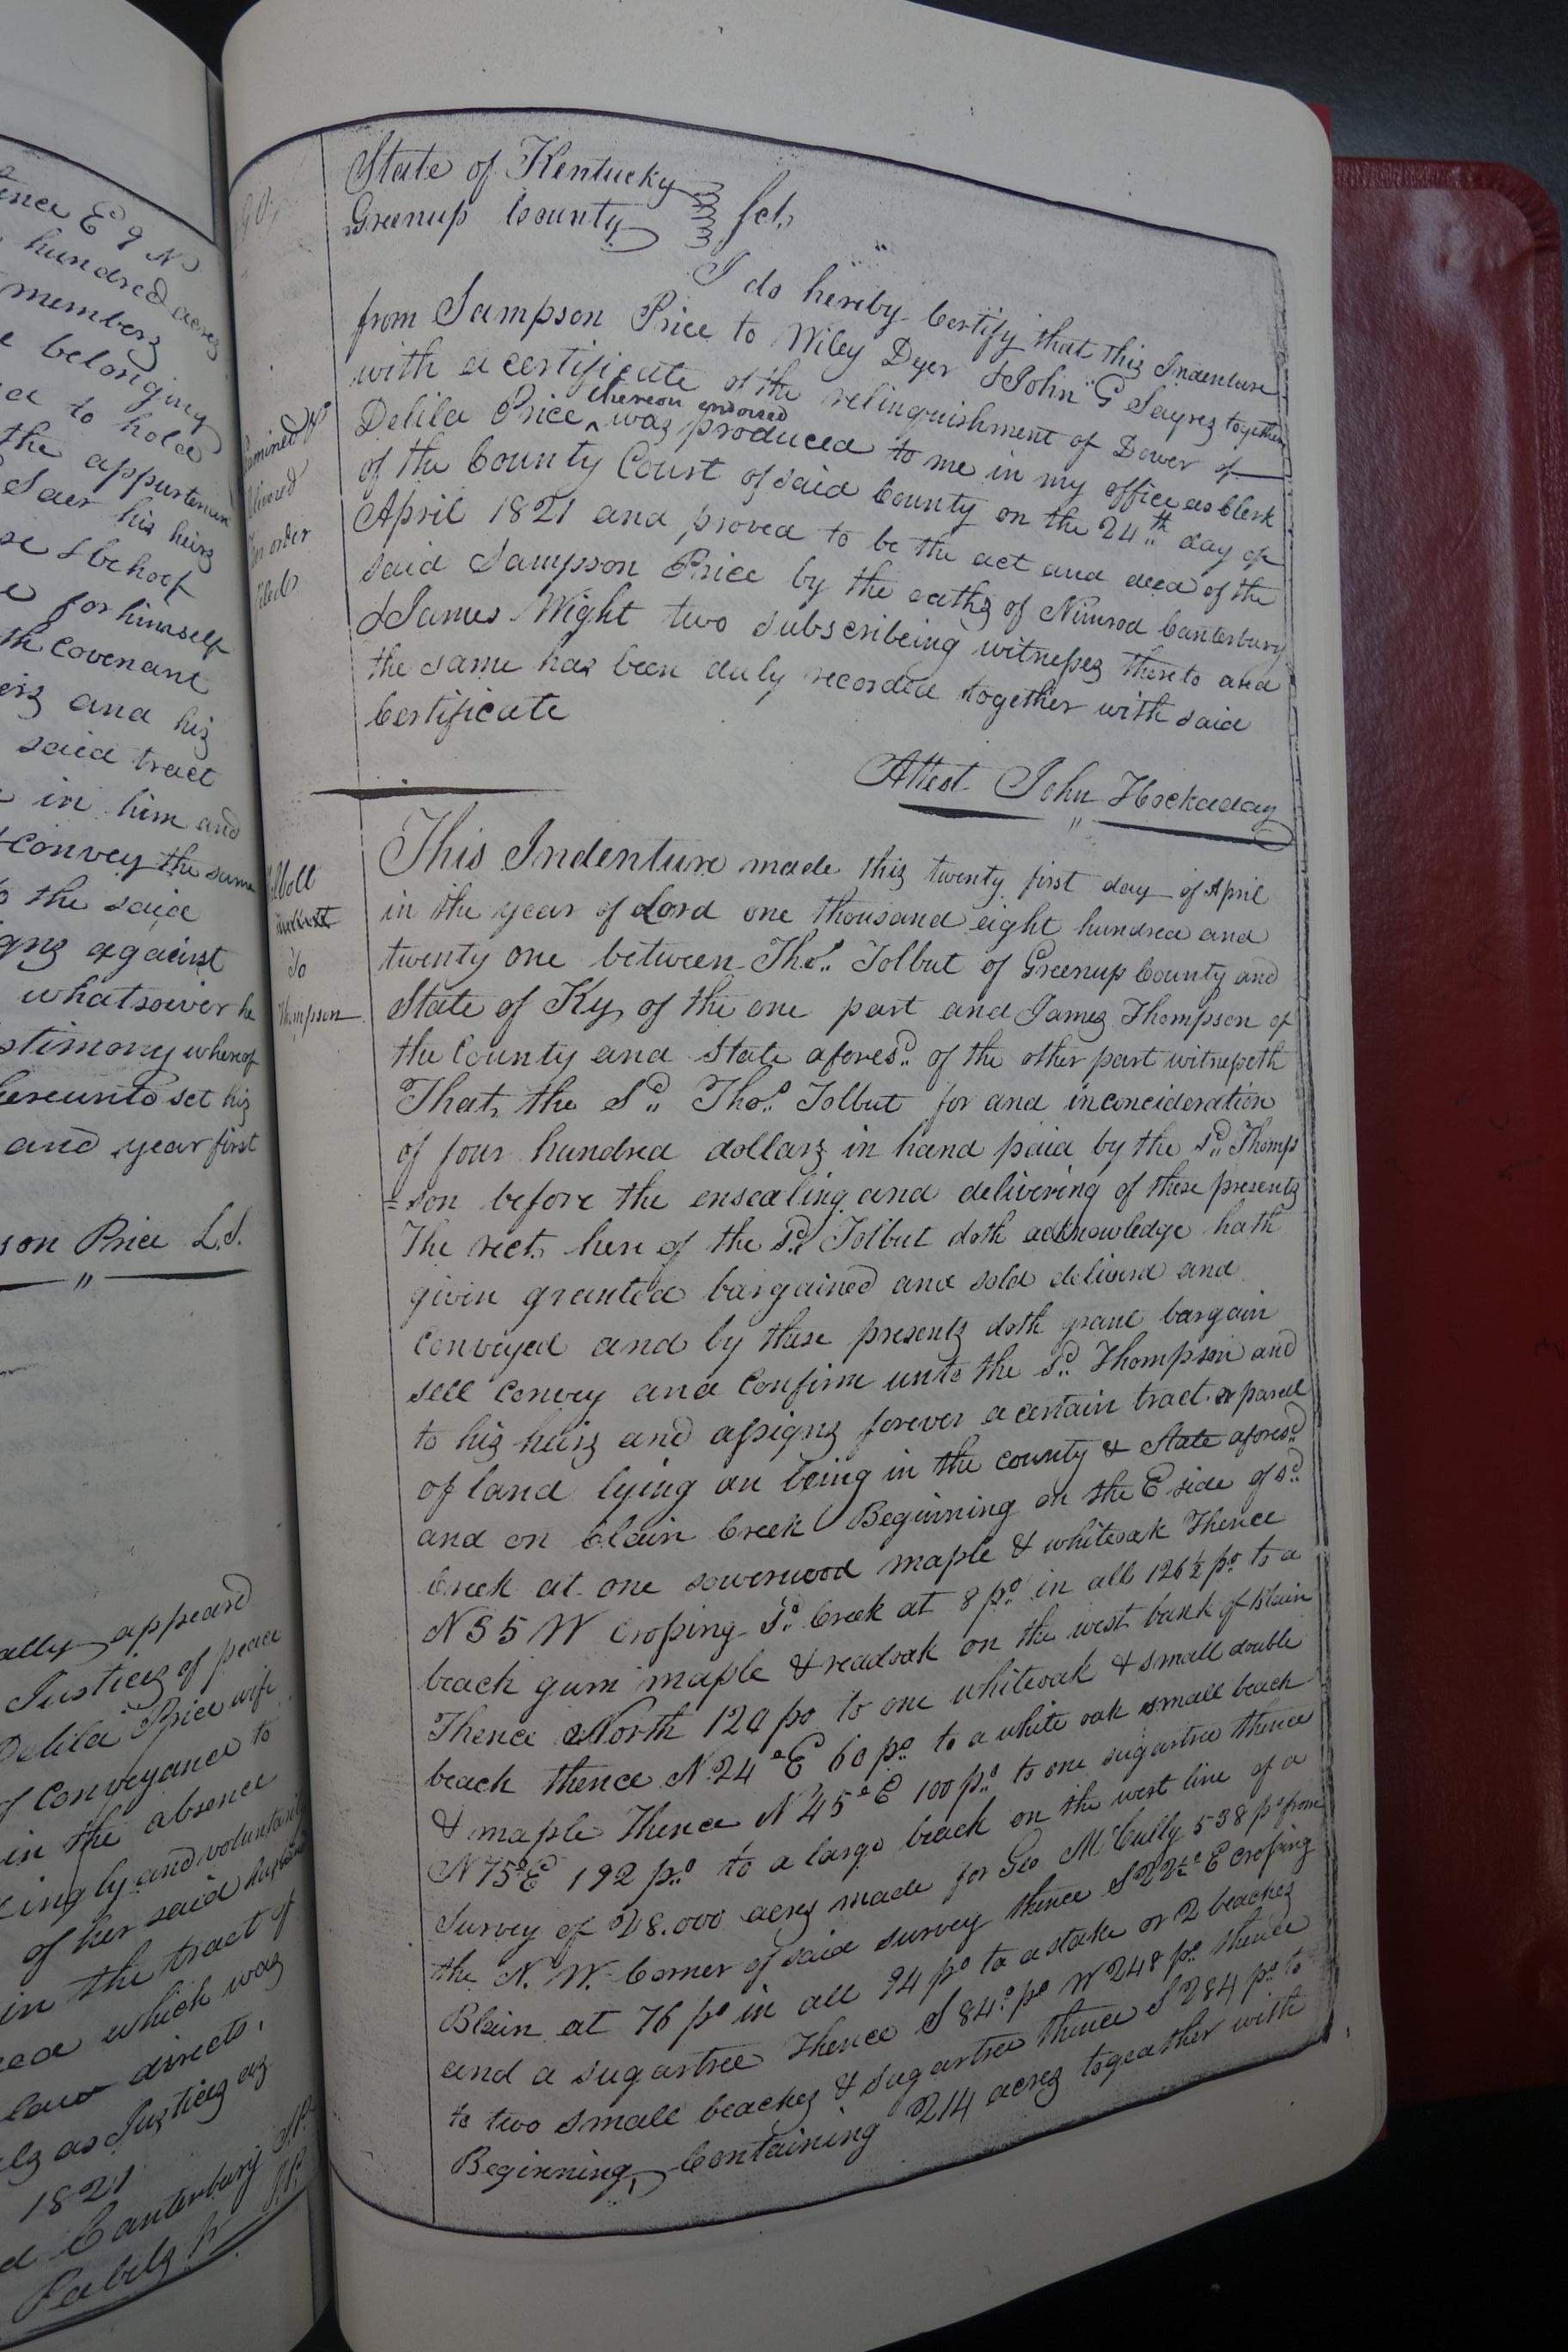 ence E 9 N
hundred acres
members
e belonging
to hold
the appurtenan
Saer his heirs
se & behoof
for himself
th covenant
eirs and his
said tract
in him and
convey the same
to the said
igns against
whatsoiver he
stimony whereof
hereunto set his
and year first
son Price L.S.
ally appeard
Justices of peace
Delila Price wife
of conveyance to
in the absence
lingly and voluntarily
of her said husband
in the tract of
which was
law directs,
as Justices as
1821
Canterbury J.P.
J.P.
90,
State of Kentucky
Greenup County } Sct,
I do hereby Certify that this Indenture
from Sampson Price to Wiley Dyer & John G Sayres together
with a certificate of the relinquishment of Dower of
Delila Price thereon endorsed was produced to me in my office as Clerk
of the County Court of said County on the 24th day of
April 1821 and proved to be the act and deed of the
said Sampson Price by the oaths of Nimrod Canterbury
& James Wight two subscribeing witnesses thereto and
the same has been duly recorded together with said
Certificate
Attest John Hockaday
amined &
livered
order
To
Thompson
This Indenture made this twenty first day of April
in the year of Lord one thousand eight hundred and
twenty one between Thos. Tolbut of Greenup County and
State of Ky, of the one part and James Thompson of
the County and State aforesd. of the other part witnesseth
That, the Sd. Thos. Tolbut for and inconcideration
of four hundred dollars in hand paid by the sd. Thomp
=son before the ensealing and delivering of these presents
The rect. here of the Sd. Tolbut doth acknowledge hath
given granted bargained and sold deliverd and
Conveyed and by these presents doth grant bargain
sell Convey and Confirm unto the Sd. Thompson and
to his heirs and assigns forever a certain tract or parcell
of land lying an being in the county & State aforesd.
and on Blain Creek Beginning on the E side of sd.
Creek at one sowerwood maple & whiteoak Thence
N 55 W Crossing Sd. Creek at 8 po. in all 126½ po. to a
beach gum maple & readoak on the west bank of Blain
Thence North 120 po to one whiteoak & small double
beach thence N. 24° E 60 po. to a white oak small beach
& maple Thence N 45° E 100 po. to one sugartree thence
N 75° E 192 po. to a large beach on the west line of a
Survey of 28.000 acres made for Geo McCully 538 po from
the N. W. Corner of said survey thence S 22½° E crossing
Blain at 76 po in all 94 po to a stake or 2 beaches
and a sugartree Thence S 84° po W 248 po. thence
to two small beaches & sugartree thence S 284 po. to
Beginning, Containing 214 acres togeather with